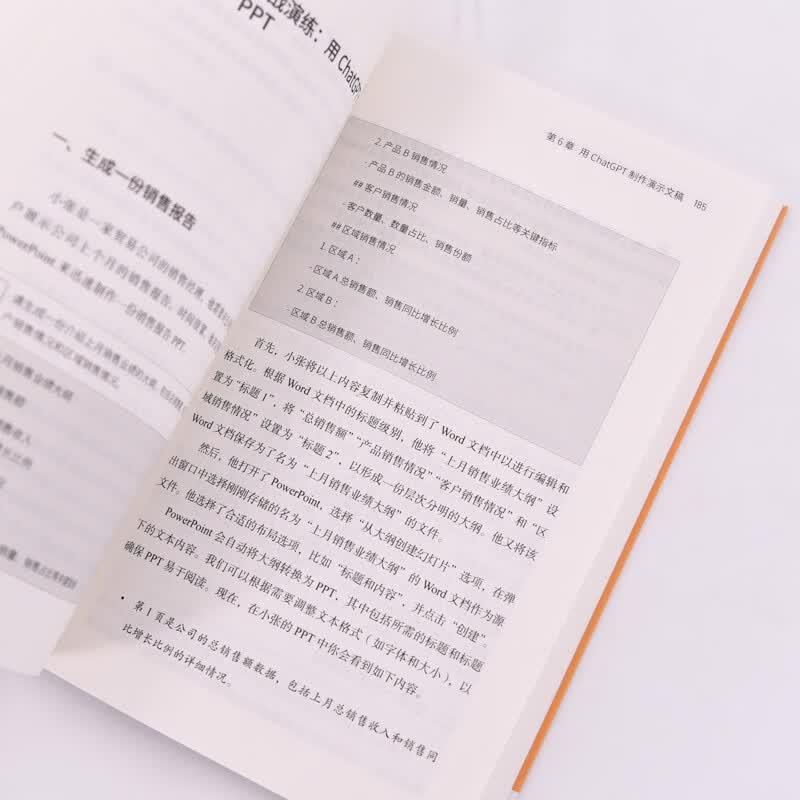 战演练：用 ChatGPT
PPT
一、生成一份销售报告
小张是一家贸易公司的销售经理，
户展示公司上个月的销售报告。时间紧急，
PowerPoint 来迅速制作一份销售报告 PPT。
请生成一份介绍上月销售业绩的大纲，
户销售情况和区域销售情况。
月销售业绩大纲
销售额
售收入
增长比例
情况
销量、销售占比等关键
第 6 章 用 ChatGPT 制作演示文稿 185
2. 产品 B 销售情况
- 产品 B 的销售金额、销量、销售占比等关键指标
## 客户销售情况
- 客户数量、数量占比、销售份额
## 区域销售情况
1. 区域 A：
- 区域 A 总销售额、销售同比增长比例
2. 区域 B：
- 区域 B 总销售额、销售同比增长比例
首先，小张将以上内容复制并粘贴到了 Word 文档中以进行编辑和
格式化。根据 Word 文档中的标题级别，他将“上月销售业绩大纲”设
置为“标题 1”，将“总销售额”“产品销售情况”“客户销售情况”和“区
域销售情况”设置为“标题 2”，以形成一份层次分明的大纲。他又将该
Word 文档保存为了名为“上月销售业绩大纲”的文件。
然后，他打开了 PowerPoint，选择“从大纲创建幻灯片”选项，在弹
出窗口中选择刚刚存储的名为“上月销售业绩大纲”的 Word 文档作为源
文件。他选择了合适的布局选项，比如“标题和内容”，并点击“创建”。
PowerPoint 会自动将大纲转换为 PPT，其中包括所需的标题和标题
下的文本内容。我们可以根据需要调整文本格式（如字体和大小），以
确保 PPT 易于阅读。现在，在小张的 PPT 中你会看到如下内容。
• 第 1 页是公司的总销售额数据，包括上月总销售收入和销售同
比增长比例的详细情况。